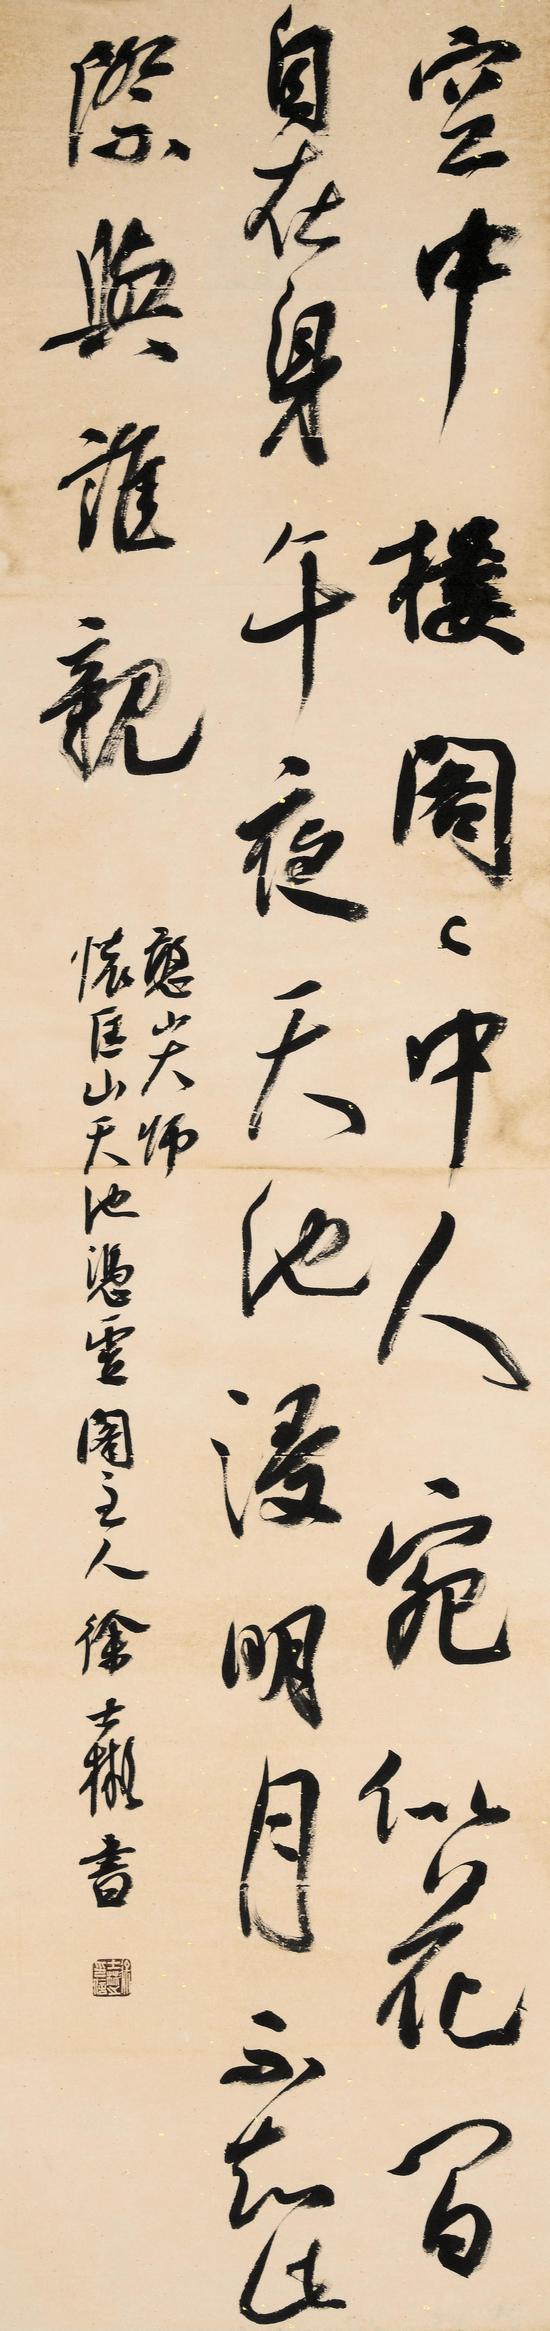 空中樓閣〻中人宛似花間
自在身午夜天池浸明月不知此
際與誰親
憨山大師
懷匡山天池憑雲閣主人徐士書